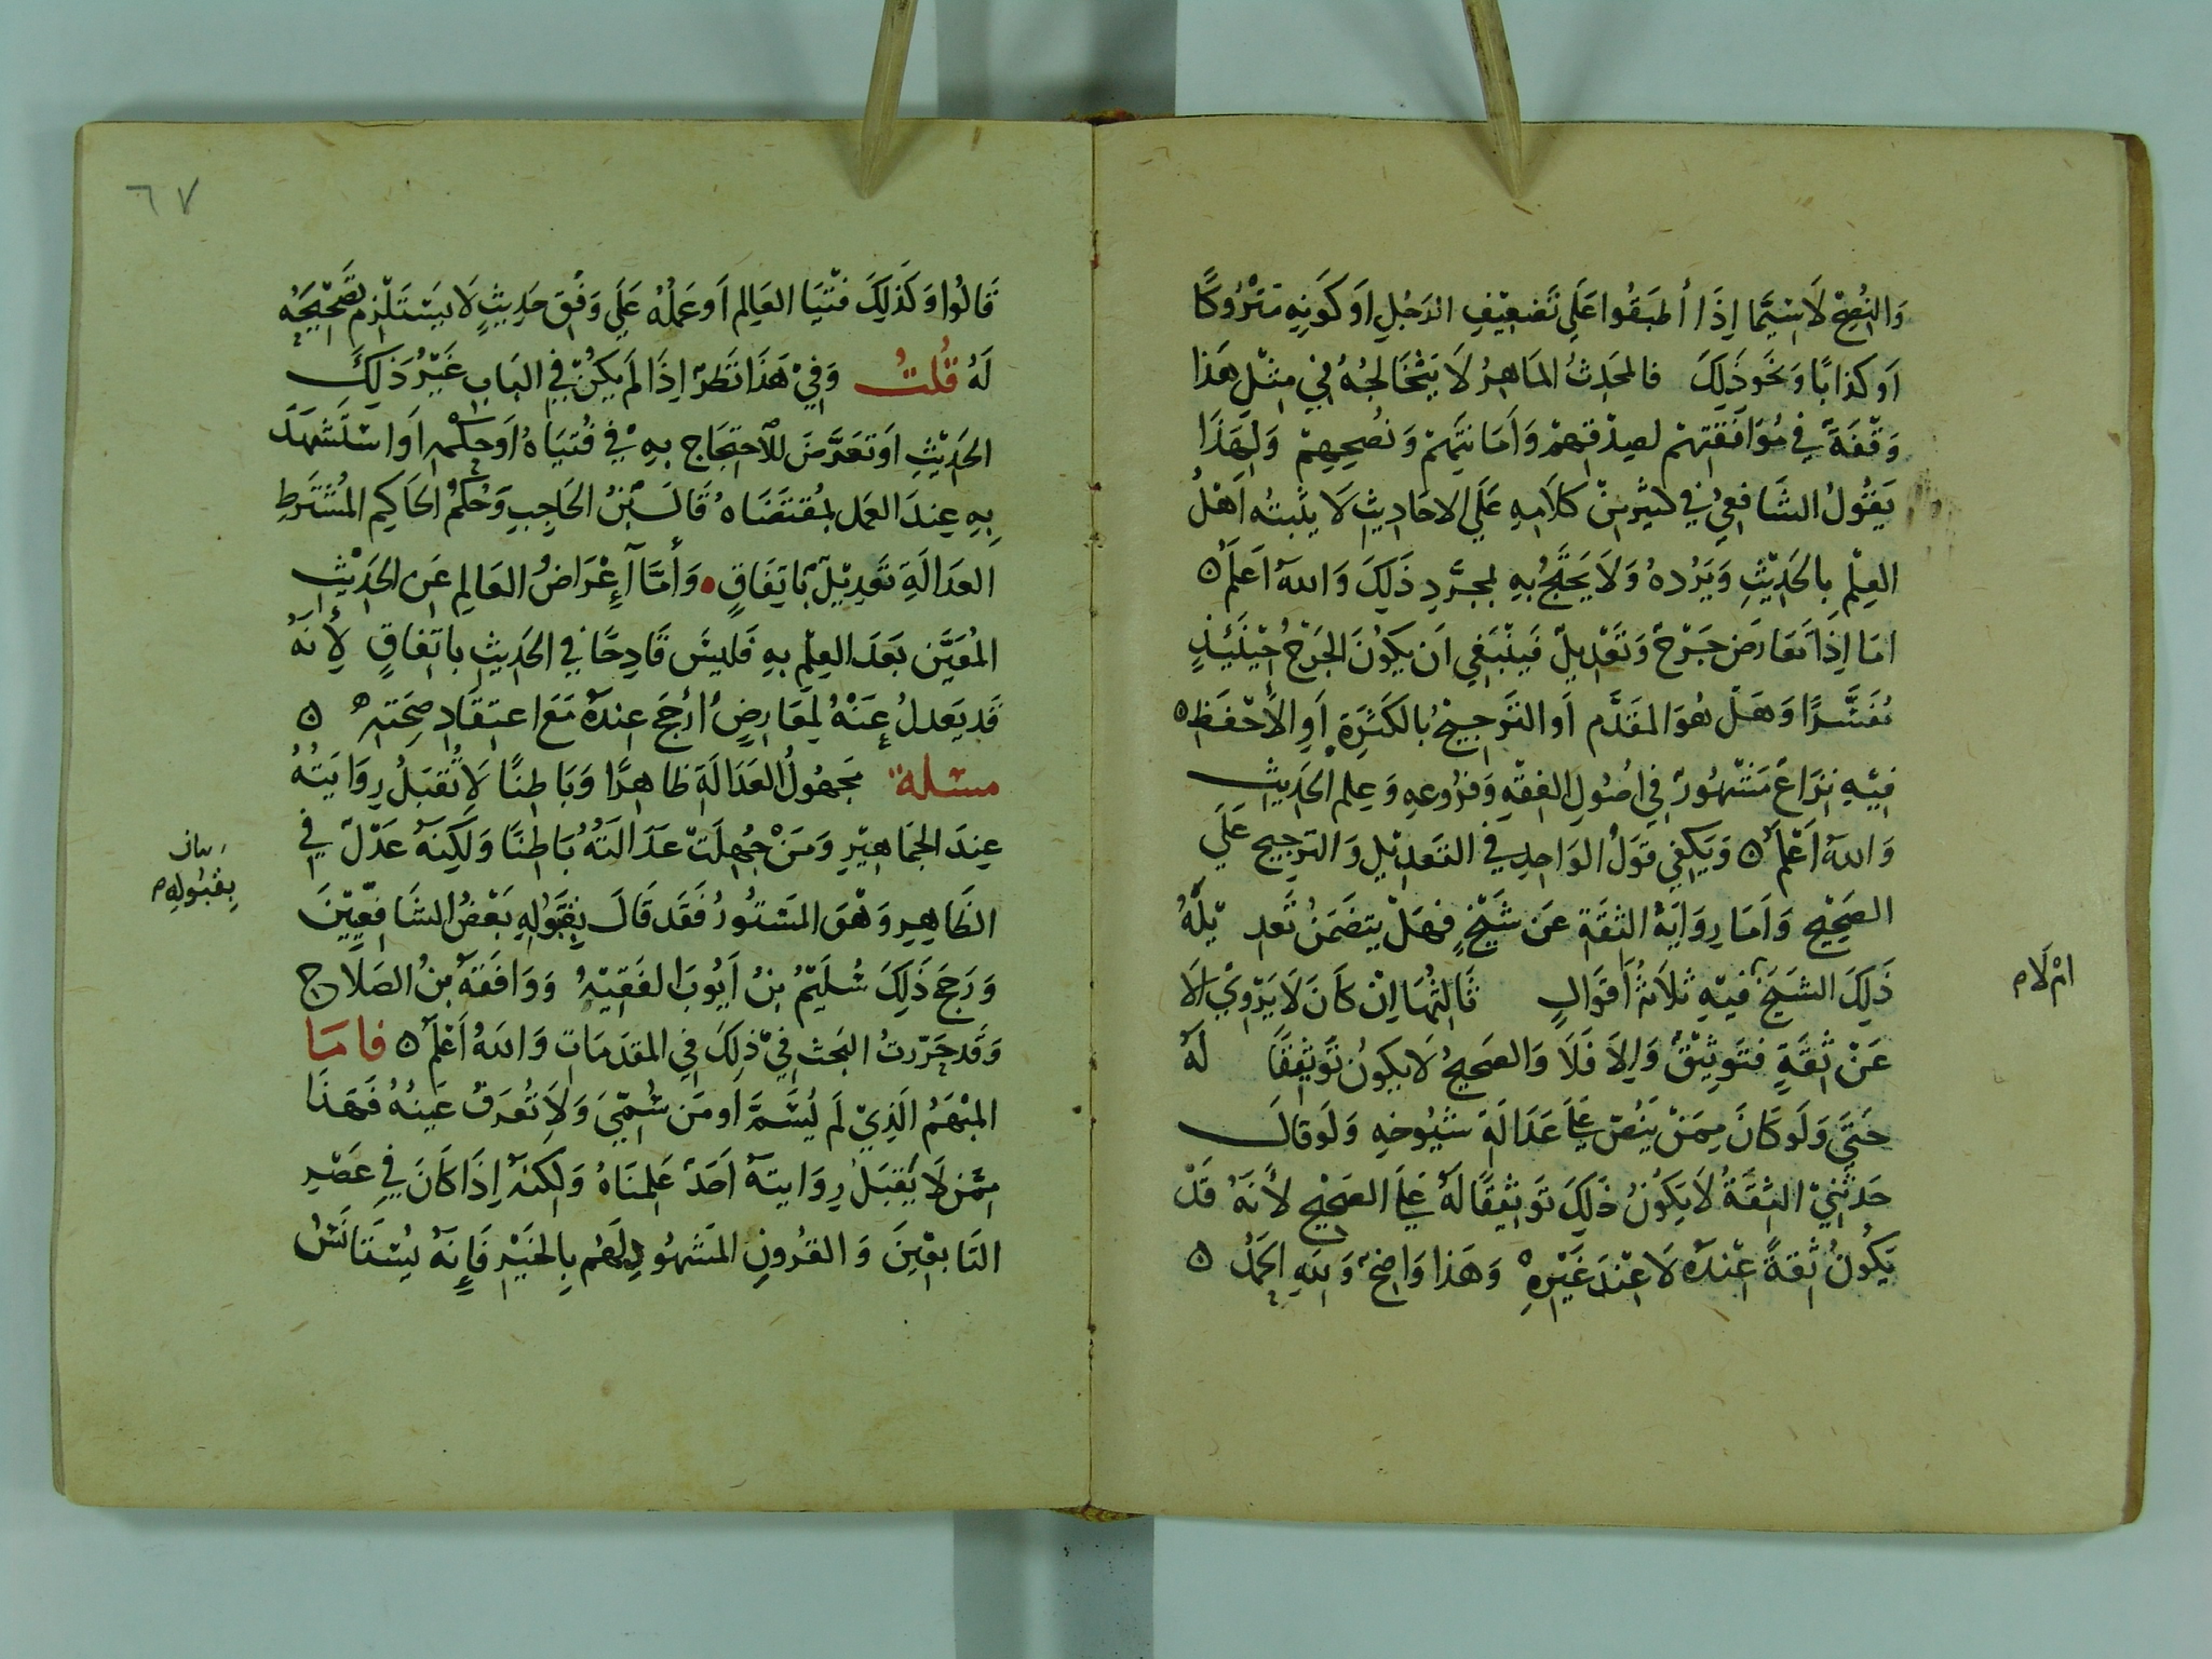 وَالنُصْحِ لَاسِيَّمَا إِذَا أطبَقُوا عَلَى تَضعِيْفِ الرَجُلِ اَو كَونِهِ مَتْرُوكًا
اَو كذابًا وَنَحَو ذَلِكَ فالمحَدِثُ المَاهِرُ لَا يَتْخَالجُهُ فِيْ مِثْلِ هَذا
وَقْفَةً في مُوَافَقَتِهِمْ لصِدْقِهِمْ وَاَمَانَتِهِمْ وَنُصحِهِمْ وَلِهَذَا
يَقُولُ الشَافعِيُ في كثيْرٍ مِنْ كلَامِهِ عَلَى الاحَادِيثِ لَا يثبتُه اَهْلُ
العِلْمِ بالحَدِيْثِ وَيَرُدهُ وَلَا يَحْتَجُّ بِهِ بمجرَّدِ ذَلِكَ وَاللهُ اَعلَمُ ه
امَا اِذَا تَعَارَضَ جَرْحٌ وَتَعْدِيلٌ فَيَنْبَغِي اَن يَكوُنَ الجَرْحُ حِيْنَئِذٍ
مُفَسَّرًا وَهَلْ هُوَ المقَدَّم اَو التَرجِيحُ بالكَثرَةِ اَوِ الأحْفَظِ ه
فِيْهِ نزَاعٌ مَشْهُورٌ فِي اصُولِ الفقْهِ وَفرُوعِهِ وَعِلمِ الحَدِيثِ
وَاللهُ اَعْلَمُ ه وَيَكفِي قَولُ الوَاحِدِ في التَعدِيْلِ وَالترجيح عَلَى
الصَحِيْحِ وَاَمَا رِوَايَةُ الثقَةِ عَن شَيْخٍ فهَلْ يتضَمَنُ تَعدِ يْلَهُ
ذَلِكَ الشَيخَ فيْهِ ثلاَثةُ اَقوَالٍ ثَالثُهَا اِنْ كَانَ لَا يَرْوِيْ اِلَا
امْ لَام
عَنْ ثقَةٍ فتَوثِيْقٌ وَاِلاَ فَلَا وَالصَحيحُ لَا يكوُن تَوثيْقًا لَهُ
حَتَّى وَلَو كَانَ مِمَنْ يَنُصّ عَلَى عَدَالَةِ شيُوخِهِ وَلَو قَالَ
حَدثَنِيْ الثِقَةُ لَا يَكوُنُ ذَلِكَ تَوثِيْقًا لَهُ عَلَى الصَحِيْحِ لأنَهُ قَدْ
يَكُونُ ثقةً عنْدَهُ لَا عنْدَ غَيْرِهِ وَهَذا وَاضحٌ وَلِلَهِ الحَمْدُ ه
٦٧
قَالُوا وَكَذلِكَ فتْيَا العَالِم اَو عَمَلُهُ عَلَى وَفْقِ حَدِيثٍ لَا يَسْتَلْزِم تَصْحِيْحِهُ
لَهُ قُلتُ وَفِيْ هَذَا نَظَرٌ اِذَا لَم يَكُنْ فِي البَابِ غَيْرُ ذَلِكَ
الحَدِيْثِ اَو تَعَرَّضَ لِلاحتجَاج بِهِ في فُتيَاهُ اَو حكمْهِ اَوِ اسْتَشْهَدَ
بِهِ عِندَ العَملِ بمُقتَضَاهُ قَالَ بْنُ الحَاجِبِ وَحُكمُ الحَاكِم المُشْتَرَطِ
العَدَالَةِ تَعدِيْلٌ بَاتِفَاقٍ . وَأمَّا إِعْرَاضُ العَالِمِ عَن الحَدِيْثِ
المُعَيَّنِ بَعَدَ العِلْمِ بِهِ فَليسَ قَادِحًا في الحَدِيثِ باتفاقٍ لأنَهُ
قَد يَعدلُ عَنْهُ لمعَارِضٍ أرجَح عندَهُ مَعَ اعتِقَادِ صِحَتِهِ ه
مسئلة مَجهُولُ العَدَالَةِ ظاهرًا وَبَاطِنًا لَا تُقبَلُ رِوَايَتُهُ
عِندَ الجمَاهِيْرِ وَمَنْ جُهِلَتْ عَدَالَتُهُ بَاطِنًا وَلَكِنَهُ عَدْلٌ في
الظَاهِرِ وَهْوَ المَسْتوُرُ فَقَد قَالَ بقَبُولِهِ بَعْضُ الشَافِعِيِيْنَ
بقبُولهِ
وَرَجَحَ ذَلِكَ سُلَيْمُ بنُ اَيُوبَ الفَقِيْهُ وَوَافَقَهُ بنُ الصَلَاح
وَقَد حَرّرتُ البَحْث فِيْ ذلِكَ فِي المقَدمَاتِ وَاللهُ اَعْلَمُ ه فامَا
المُبْهَمُ الَذِيْ لَم يُسَمَّ اَو مَن سُمِّيَ وَلَا تُعرَفُ عَينُهُ فَهَذَا
ممَن لَا يَقبَلُ رِوَايتَهُ اَحَدٌ عَلِمنَاهُ وَلَكِنَهُ اِذَا كَانَ في عَصْرِ
التَابعِيْنَ وَالقرُونِ المَشهُودِ لَهُم بِالخَيْرِ فَإِنَهُ يُسْتَانَسُ